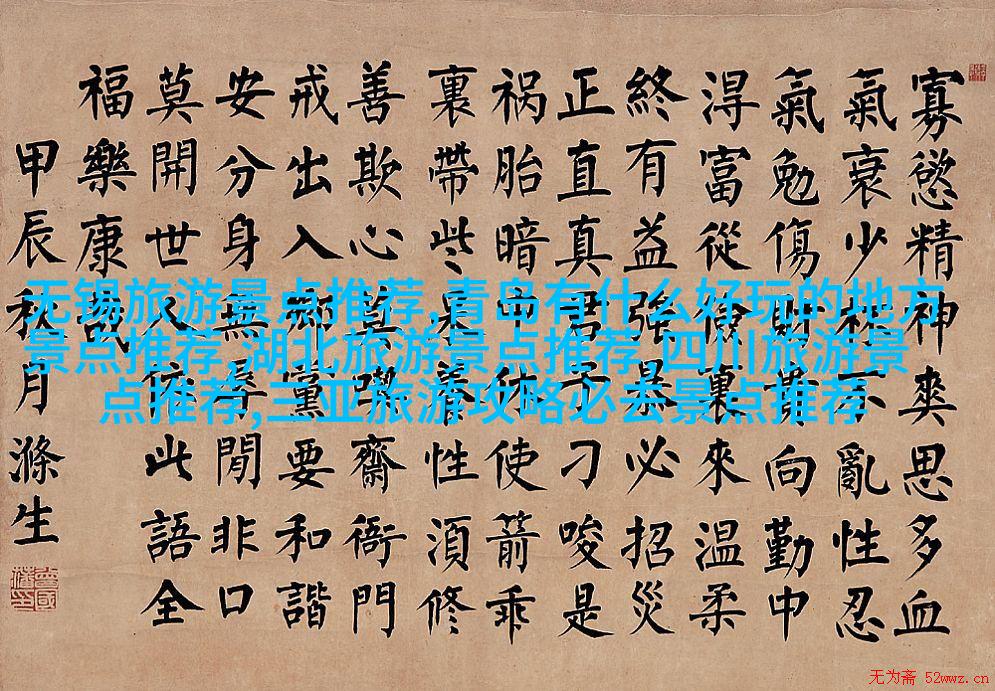 寡慾精神爽思多血
氣衰少杯不亂性忍
氣勉傷財貴向勤中
淂富從儉裏來温柔
終有益強暴必招災
正直真君子刁唆是
祸胎暗中休使箭乖
裏帶些呆養性須修
善欺心莫喫齋衙門
戒出入鄉黨要和諧
安分身無辱閒非口
莫開世人依此語全
福樂康哉
甲辰秋月滌生
无锡旅游景点推荐,青岛有什么好玩的地方
景点推荐,湖北旅游景点推荐,四川旅游景
点推荐,三亚旅游攻略必去景点推荐
无为斋 52wwz.cn